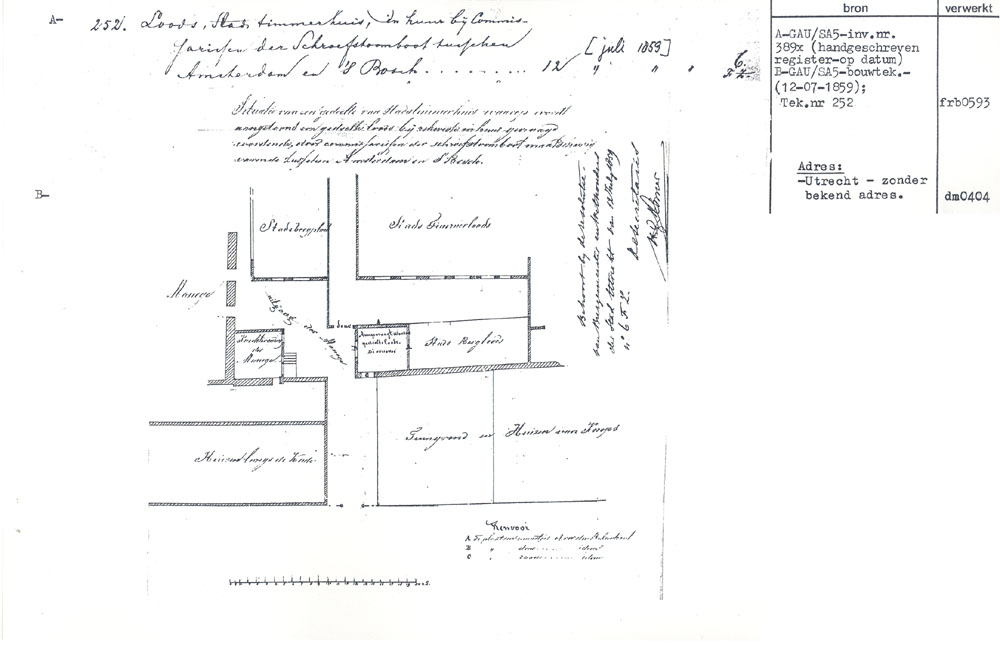 A-
252. Loods, Stads timmerhuis, in huur bij Commis-
sarissen der Schroefstoomboot tusschen
Amsterdam en 's Bosch . . . . . . . . 12 " " "
[juli 1859]
6.
F. 2.
Situatie van een gedeelte van Stadstimmerhuis waarop wordt
aangetoond een gedeelte loods bij rekweste in huur gevraagd
wordende, door commissarissen der schroefstoomboot
varende tusschen Amsterdam en 's Bosch.
B-
Behoort bij de resolutie
van Burgemeester en Wethouders
der Stad Utrecht van 12 July 1859
no 6 F. 2.
De Secretaris
Stads bergplaats
Stads Timmerloods
Manege
uitgang der Manege
deur
Stads Bergloods
Manege
Tuingrond en Huizen van Knops
Huizen langs de
Renvooi
A
B " deur idem
C " idem
bron
verwerkt
A-GAU/SA5-inv.nr.
389x (handgeschreven
register-op datum)
B-GAU/SA5-bouwtek.-
(12-07-1859);
Tek.nr 252
frb0593
Adres:
-Utrecht - zonder
bekend adres.
dm0404